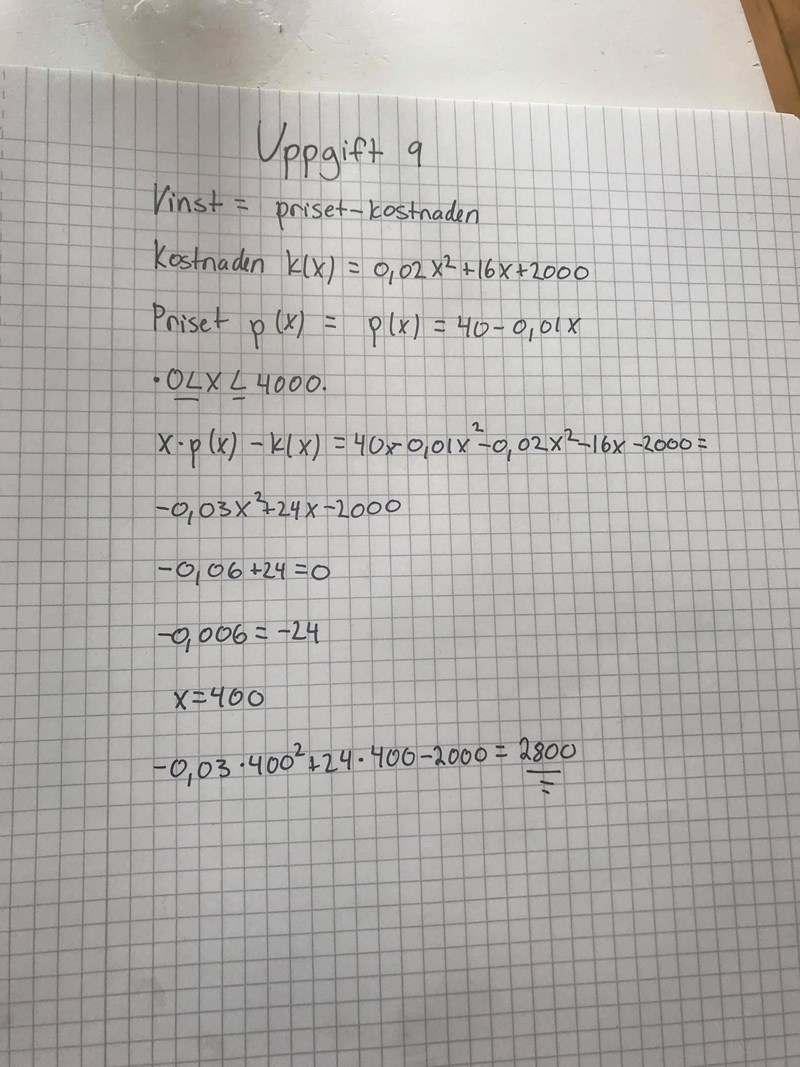 Uppgift 9
Vinst = priset-kostnaden
Kostnaden k(x) = 0,02x²+16x+2000
Priset p(x) = p(x) = 40-0,01x
·0≤x≤4000.
x·p(x)-k(x)=40x-0,01x²-0,02x²-16x-2000=
-0,03x²+24x-2000
-0,06+24=0
-0,006=-24
x=400
-0,03·400²+24·400-2000=2800